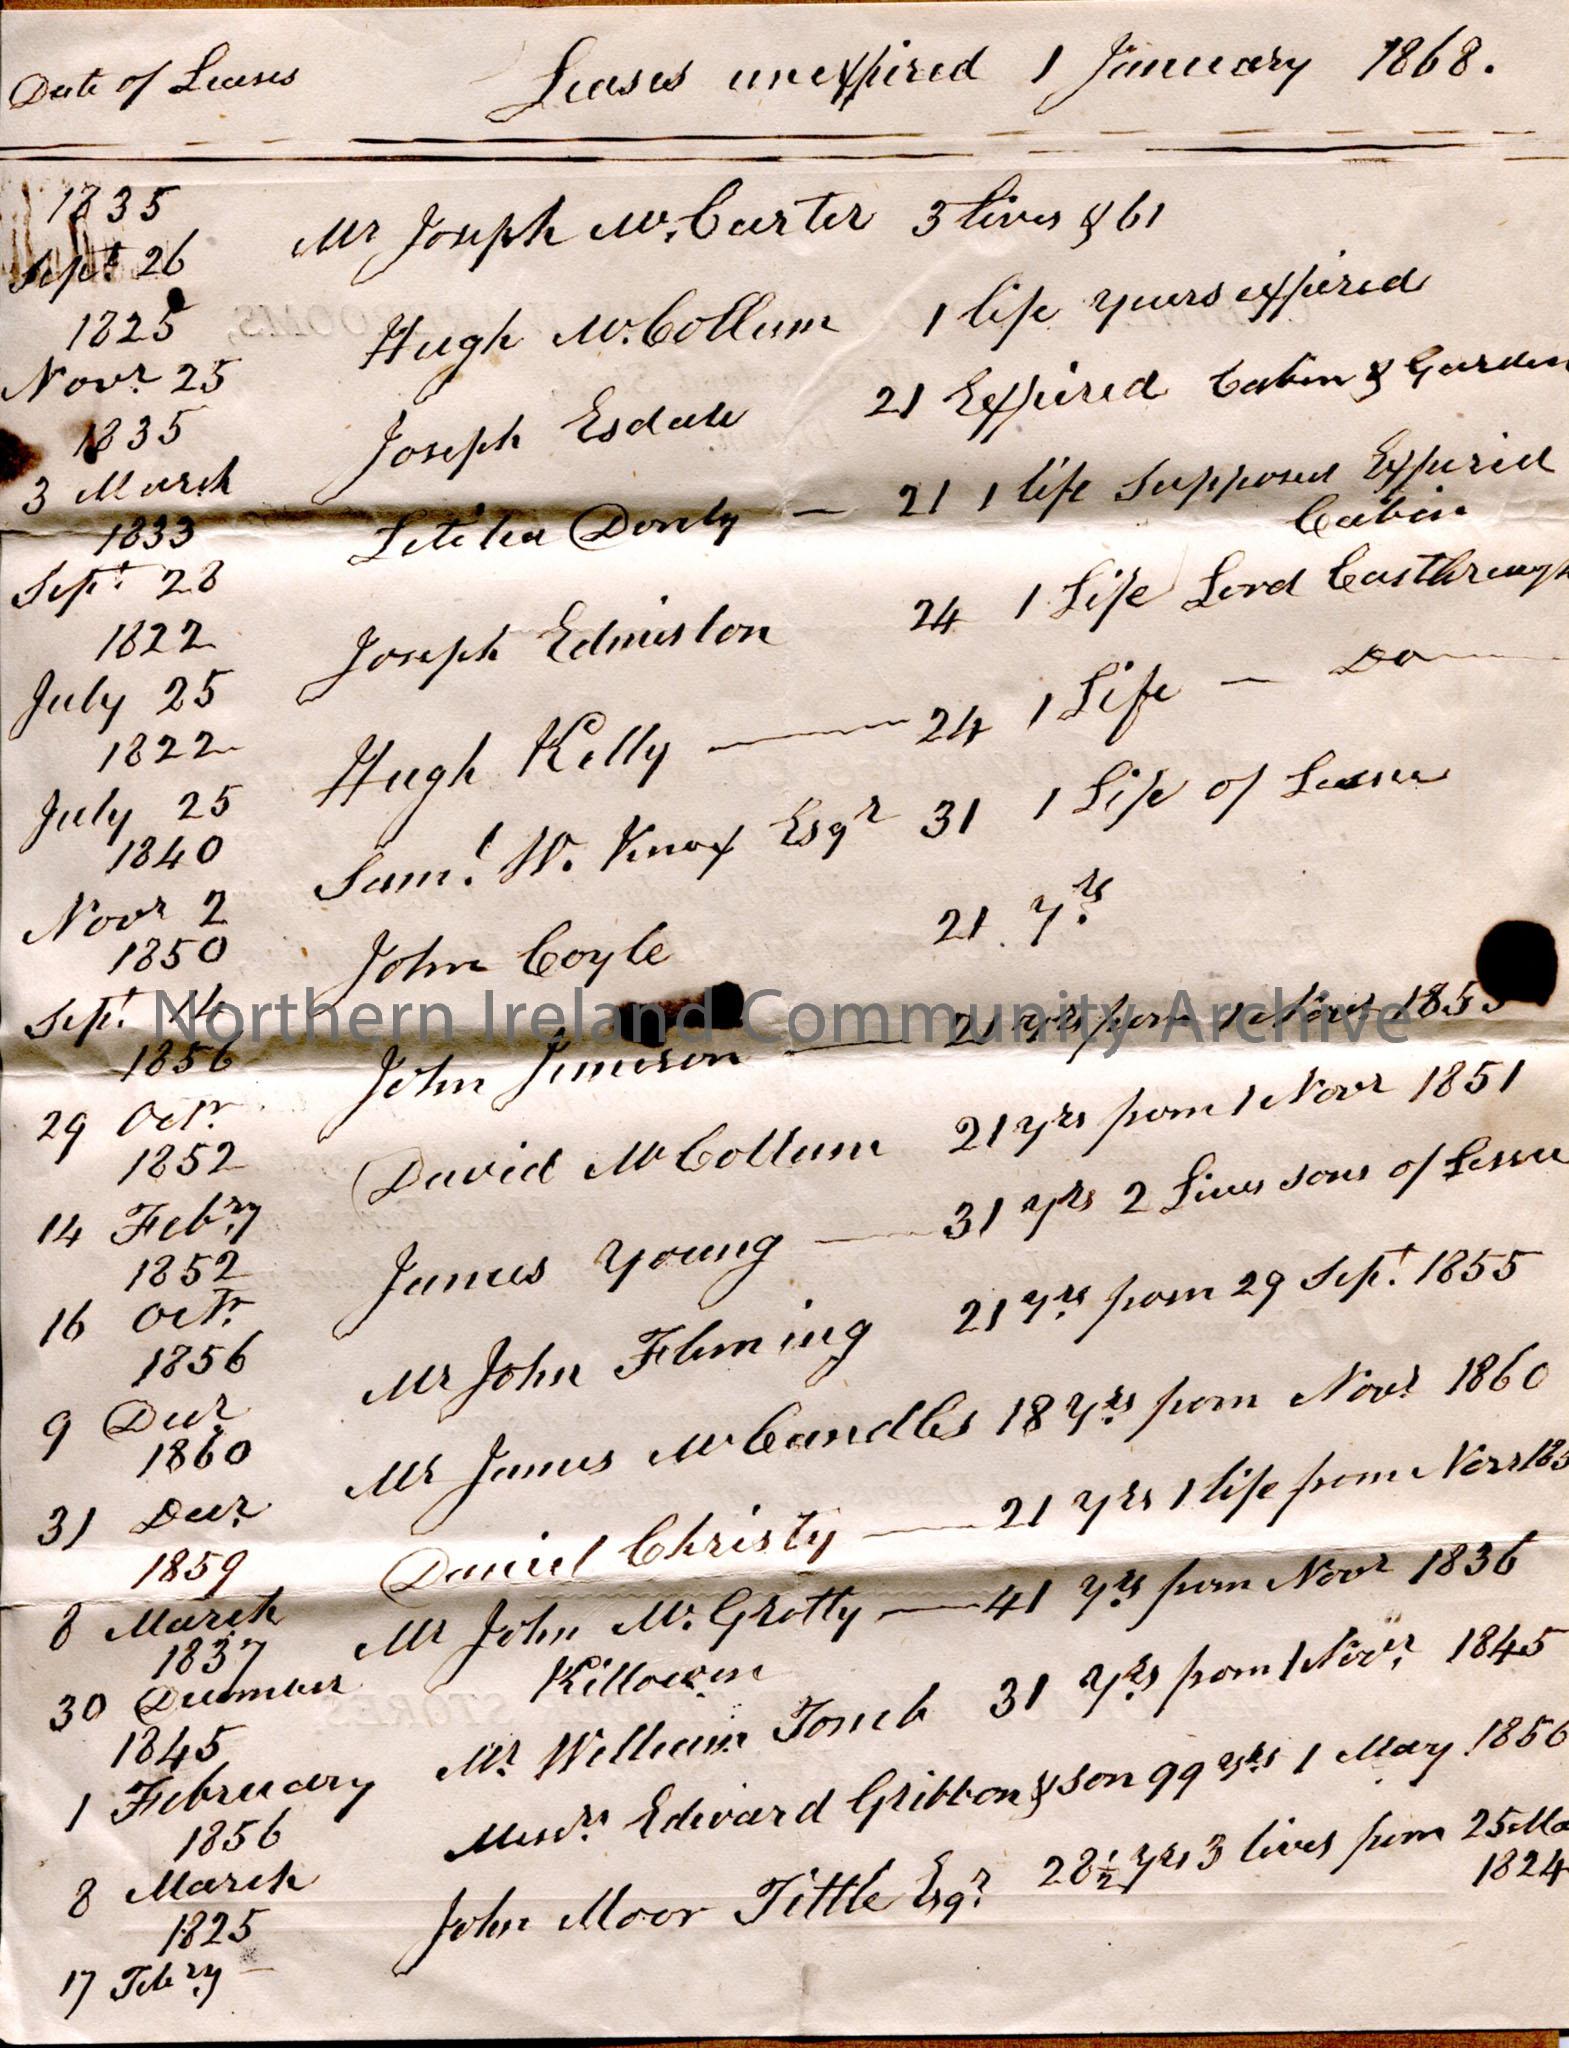 Date of Leases Leases unexpired 1 January 1868.
1835
Sept. 26 Mr Joseph Mc. Carter 3 lives & 61
1825
Novr. 25 Hugh Mc. Collum 1 life years expired
1835
3 March Joseph Esdale 21 Expired Cabin & Garden
1833
Sept. 28 Letitia Donly — 21 1 life Supposed Expired
Cabin
1822
July 25 Joseph Edmiston 24 1 Life Lord Castlereagh
1822
July 25 Hugh Kelly — 24 1 Life — Do —
1840
Novr 2 Saml. W. Knox Esqr 31 1 Life of Lessee
1850
Sept. 14 John Coyle 21 yrs.
1856
29 Octr. John Jameson — 21 yrs from 1 Novr 1855
1852
14 Febry David McCollum 21 yrs from 1 Novr 1851
1852
16 Octr. James Young — 31 yrs 2 Lives sons of Lessee
1856
9 Decr. Mr John Fleming 21 yrs from 29 Sept. 1855
1860
31 Decr. Mr James McCandles 18 yrs. from Novr 1860
1859
8 March Daniel Christy — 21 yrs 1 life from Novr 185
1837
30 December Mr John Mc. Grotty — 41 yrs from Novr 1836
Killowen
1845
1 February Mr. William Tomb 31 yrs. from 1 Novr. 1845
1856
8 March Messrs. Edward Gribbon & Son 99 yrs 1 May 1856
1825
17 Febry — John Moor Tittle Esqr. 28½ yrs 3 lives from 25 Ma
1824
Northern Ireland Community Archive